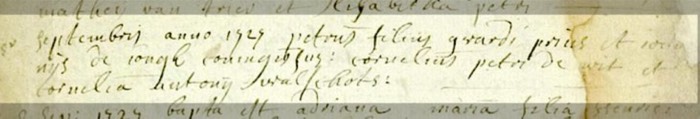 mathei van dries et Elisabetha petri
septembris anno 1727 petrus filius gerardi prins et
nijs de iongh coniugis sus: cornelius petri de wit et
cornelia antonij walschots:
sep: 1727 bapta est adriana maria filia